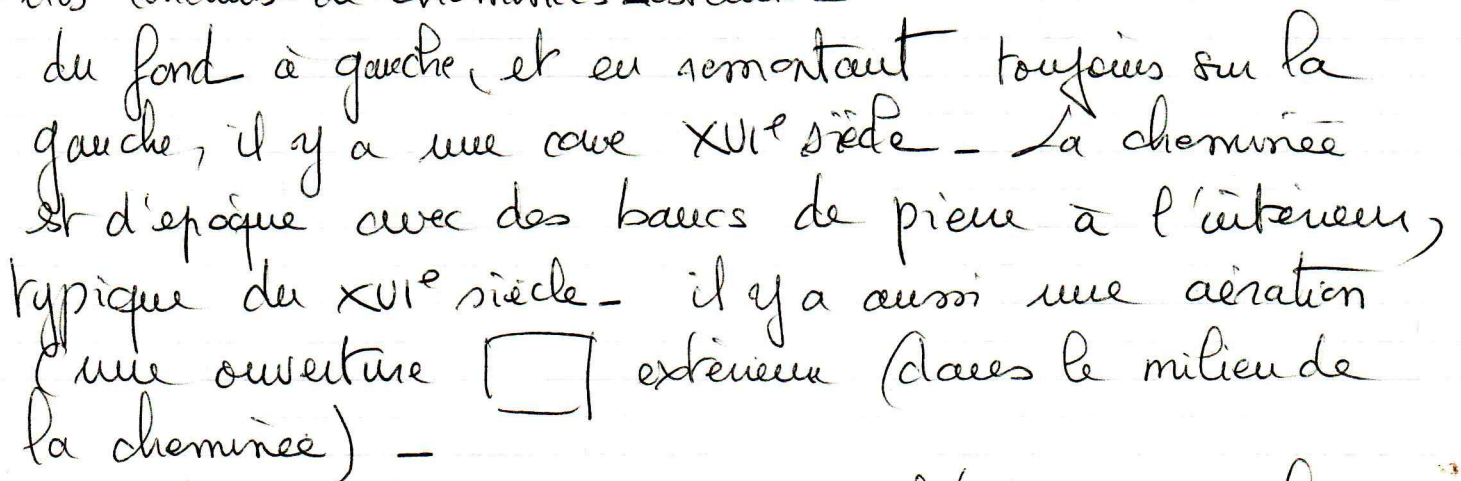 du fond à gauche, et en remontant toujours sur la
gauche, il y a une cave XVIe siècle - La cheminée
est d'époque avec des bancs de pierre à l'intérieur,
typique du XVIe siècle - il y a aussi une aération
(une ouverture extérieure (dans le milieu de
la cheminée) -